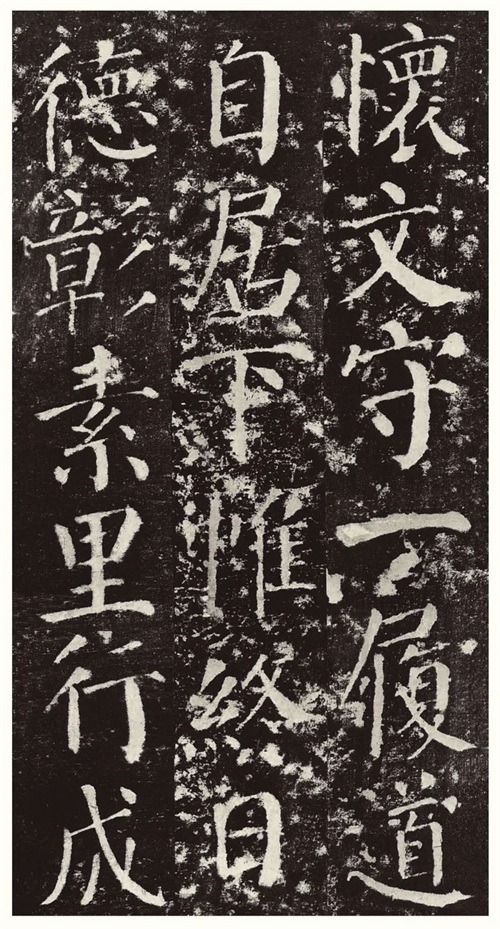 懷文守一履道
自居下帷終日
德彰素里行成